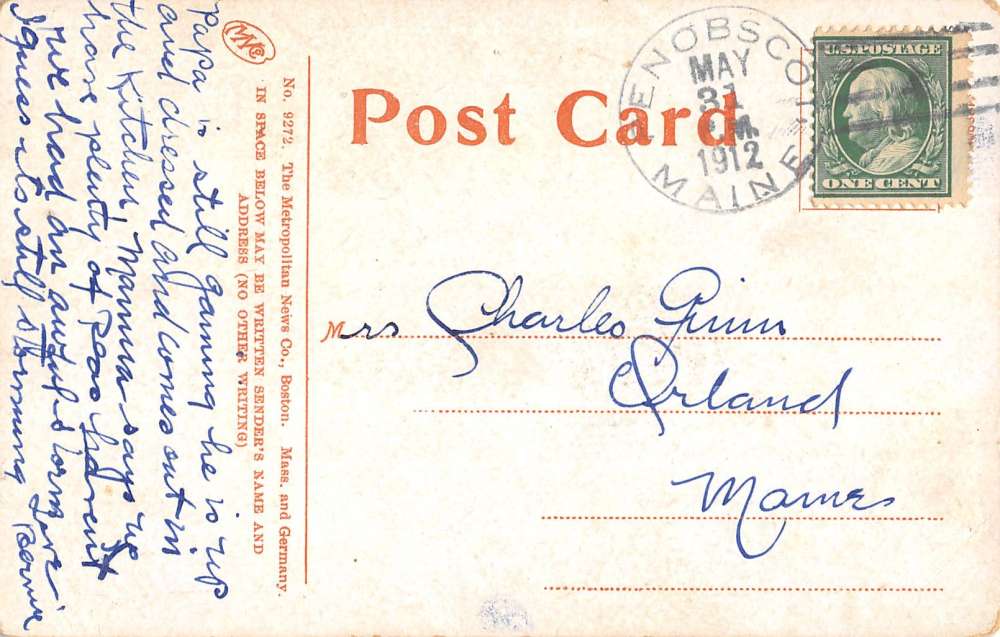 Papa is still gaining he is up
and dressed and comes out in
the Kitchen, Mamma says up
have plenty of Peas havent
we had an awful storm
I guess its still storming
Love
Bernice
MNCo
No. 9272. The Metropolitan News Co., Boston. Mass. and Germany.
IN SPACE BELOW MAY BE WRITTEN SENDER'S NAME AND
ADDRESS (NO OTHER WRITING)
Post Card
PENOBSCOT
MAY
31
P.M.
1912
MAINE
U.S. POSTAGE
ONE CENT
Mrs Charles Ginn
Orland
Maine